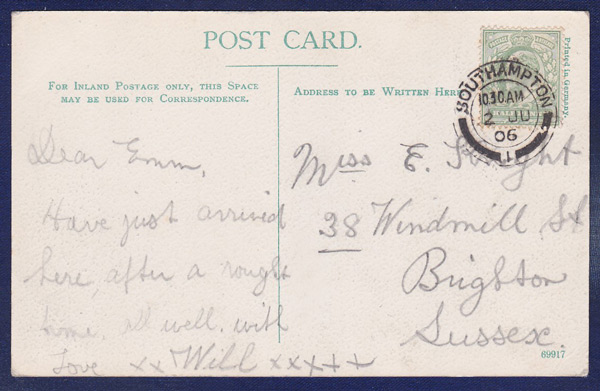 POST CARD.
FOR INLAND POSTAGE ONLY, THIS SPACE
MAY BE USED FOR CORRESPONDENCE.
ADDRESS TO BE WRITTEN HERE
Printed in Germany.
SOUTHAMPTON
10.30 AM
2 JU
06
1
Dear Emm,
Have just arrived
here, after a rought
home. all well. with
Love xx Will xxxxx
Miss E.
38 Windmill St
Brighton
Sussex.
69917